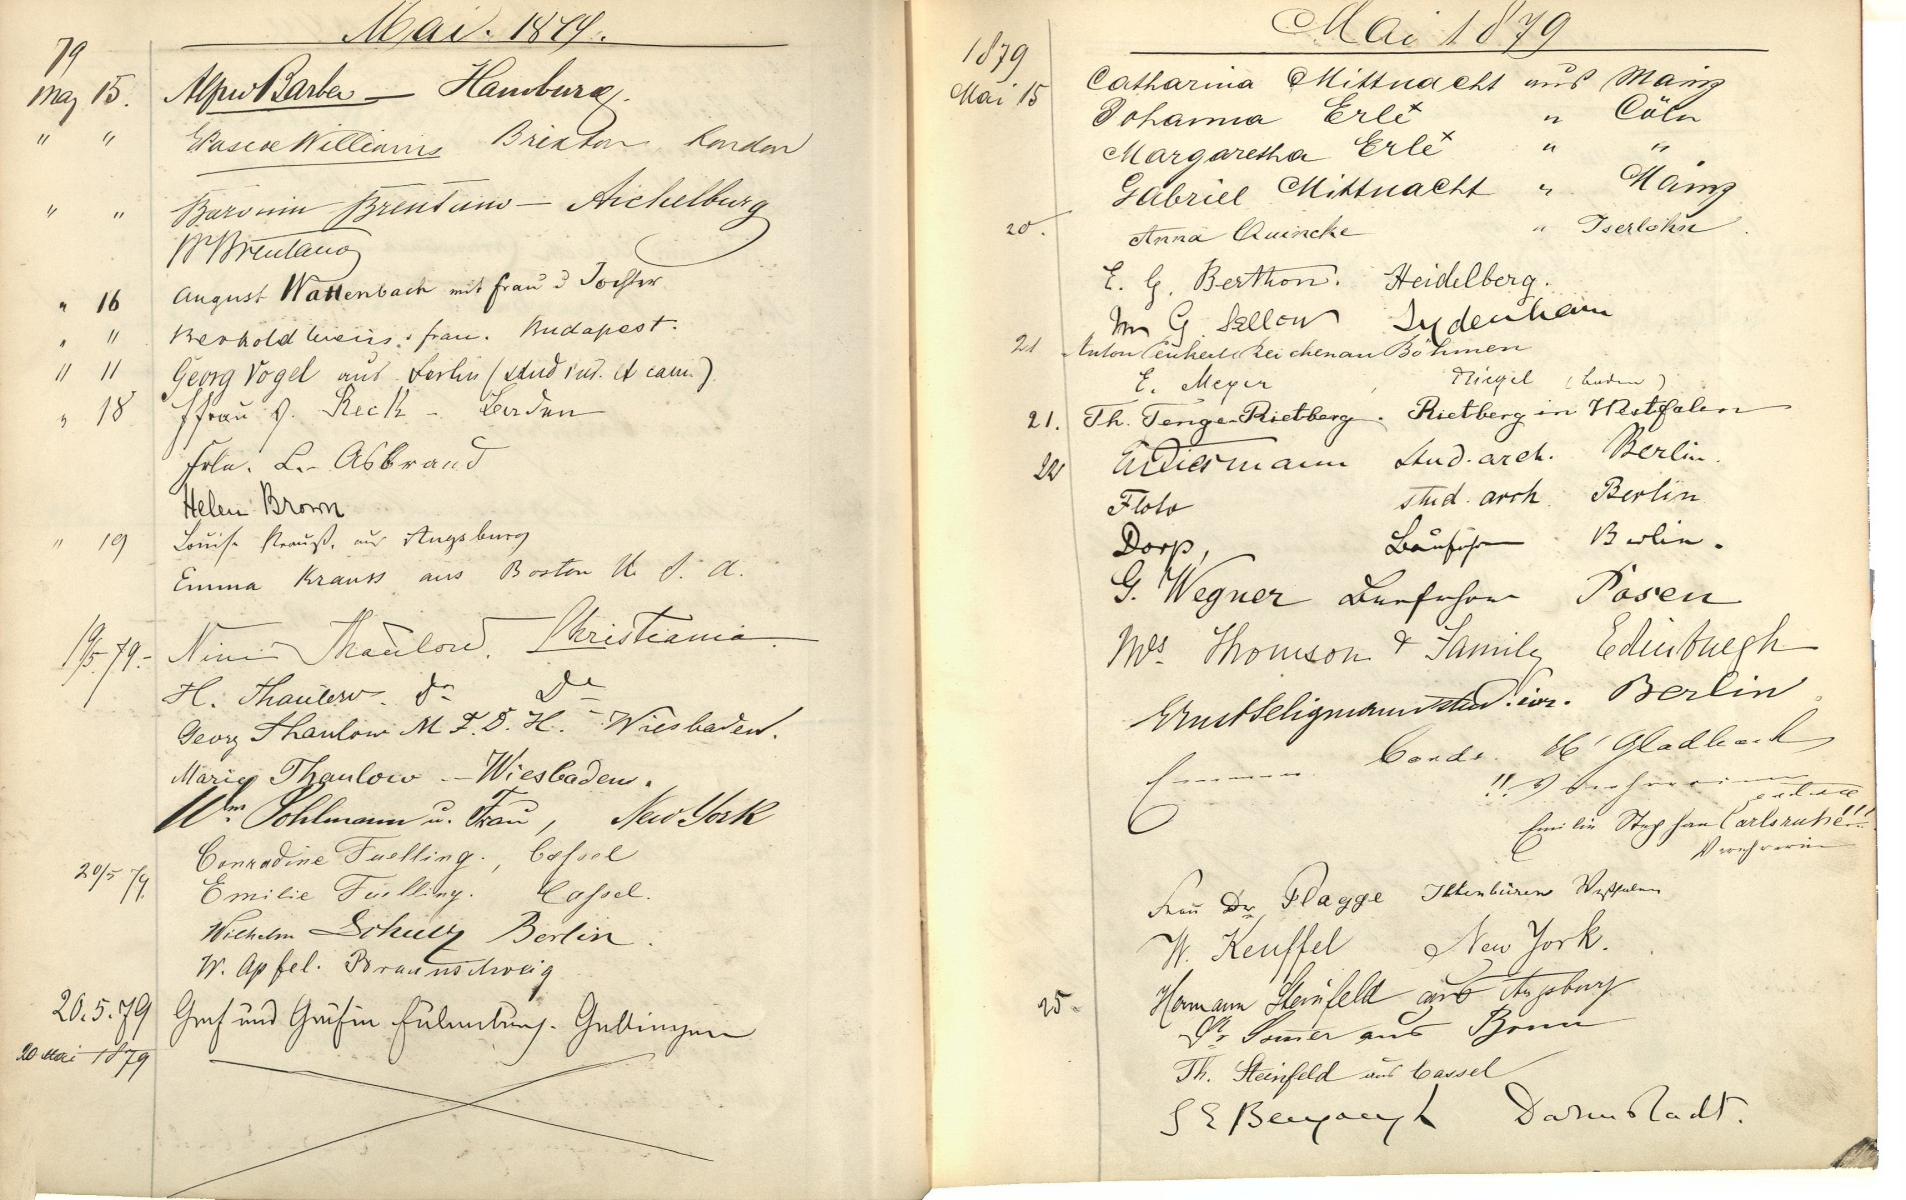 Mai. 1879.
79
May 15. Barber — Hamburg.
" " Williams Brixton London
" " Baronin Brentano — Aichelburg
Brentano
" 16 August Wattenbach mit Frau u Tochter
" " Berthold Weiss, frau. Budapest.
" " Georg Vogel aus Berlin (stud iur. et cam.)
" 18 Frau v. Reck -
Frln. L. Asbrand
Helen Brown
" 19 Louise Krauß, aus Augsburg
Emma Krauss aus Boston U. S. A.
19/5 79.- Nini Thaulow. Christiania.
H. Thaulow. do Do
Georg Thaulow M. F. D. H. - Wiesbaden.
Marie Thaulow — Wiesbaden.
Wm Pohlmann u. Frau, New York
Conradine Fuelling., Cassel
20/5 79. Emilie Fuelling. Cassel.
Wilhelm Schulz Berlin.
W. Apfel. Braunschweig
20.5.79 Graf und Gräfin
20 Mai 1879
Mai 1879
1879
Mai 15 Catharina Mittnacht aus Mainz
Johanna Erlé " Cöln
Margaretha Erlé " "
Gabriel Mittnacht " Mainz
20. Anna Quincke " Iserlohn.
E. G. Berthon. Heidelberg.
G. Sellow Sydenham
21 Anton Reichenau Böhmen
E. Meyer, Riegel (Baden)
21. Th. Tenge-Rietberg. Rietberg in Westfalen
22 stud. arch. Berlin.
Floto stud. arch. Berlin
Dorp, Bauführer Berlin.
G. Wegner Bauführer Posen
Mrs. Thomson & Family Edinburgh
Ernst Seligmann stud. iur. Berlin.
Cords. M' Gladbach
Emilie Stephan Carlsruhe!!!
Frau Dr. Flagge Ibbenbüren Westfalen
W. Keuffel New York.
25. Hermann Steinfeld aus Augsburg
Dr. aus Bonn
Th. Steinfeld aus Cassel
Darmstadt.